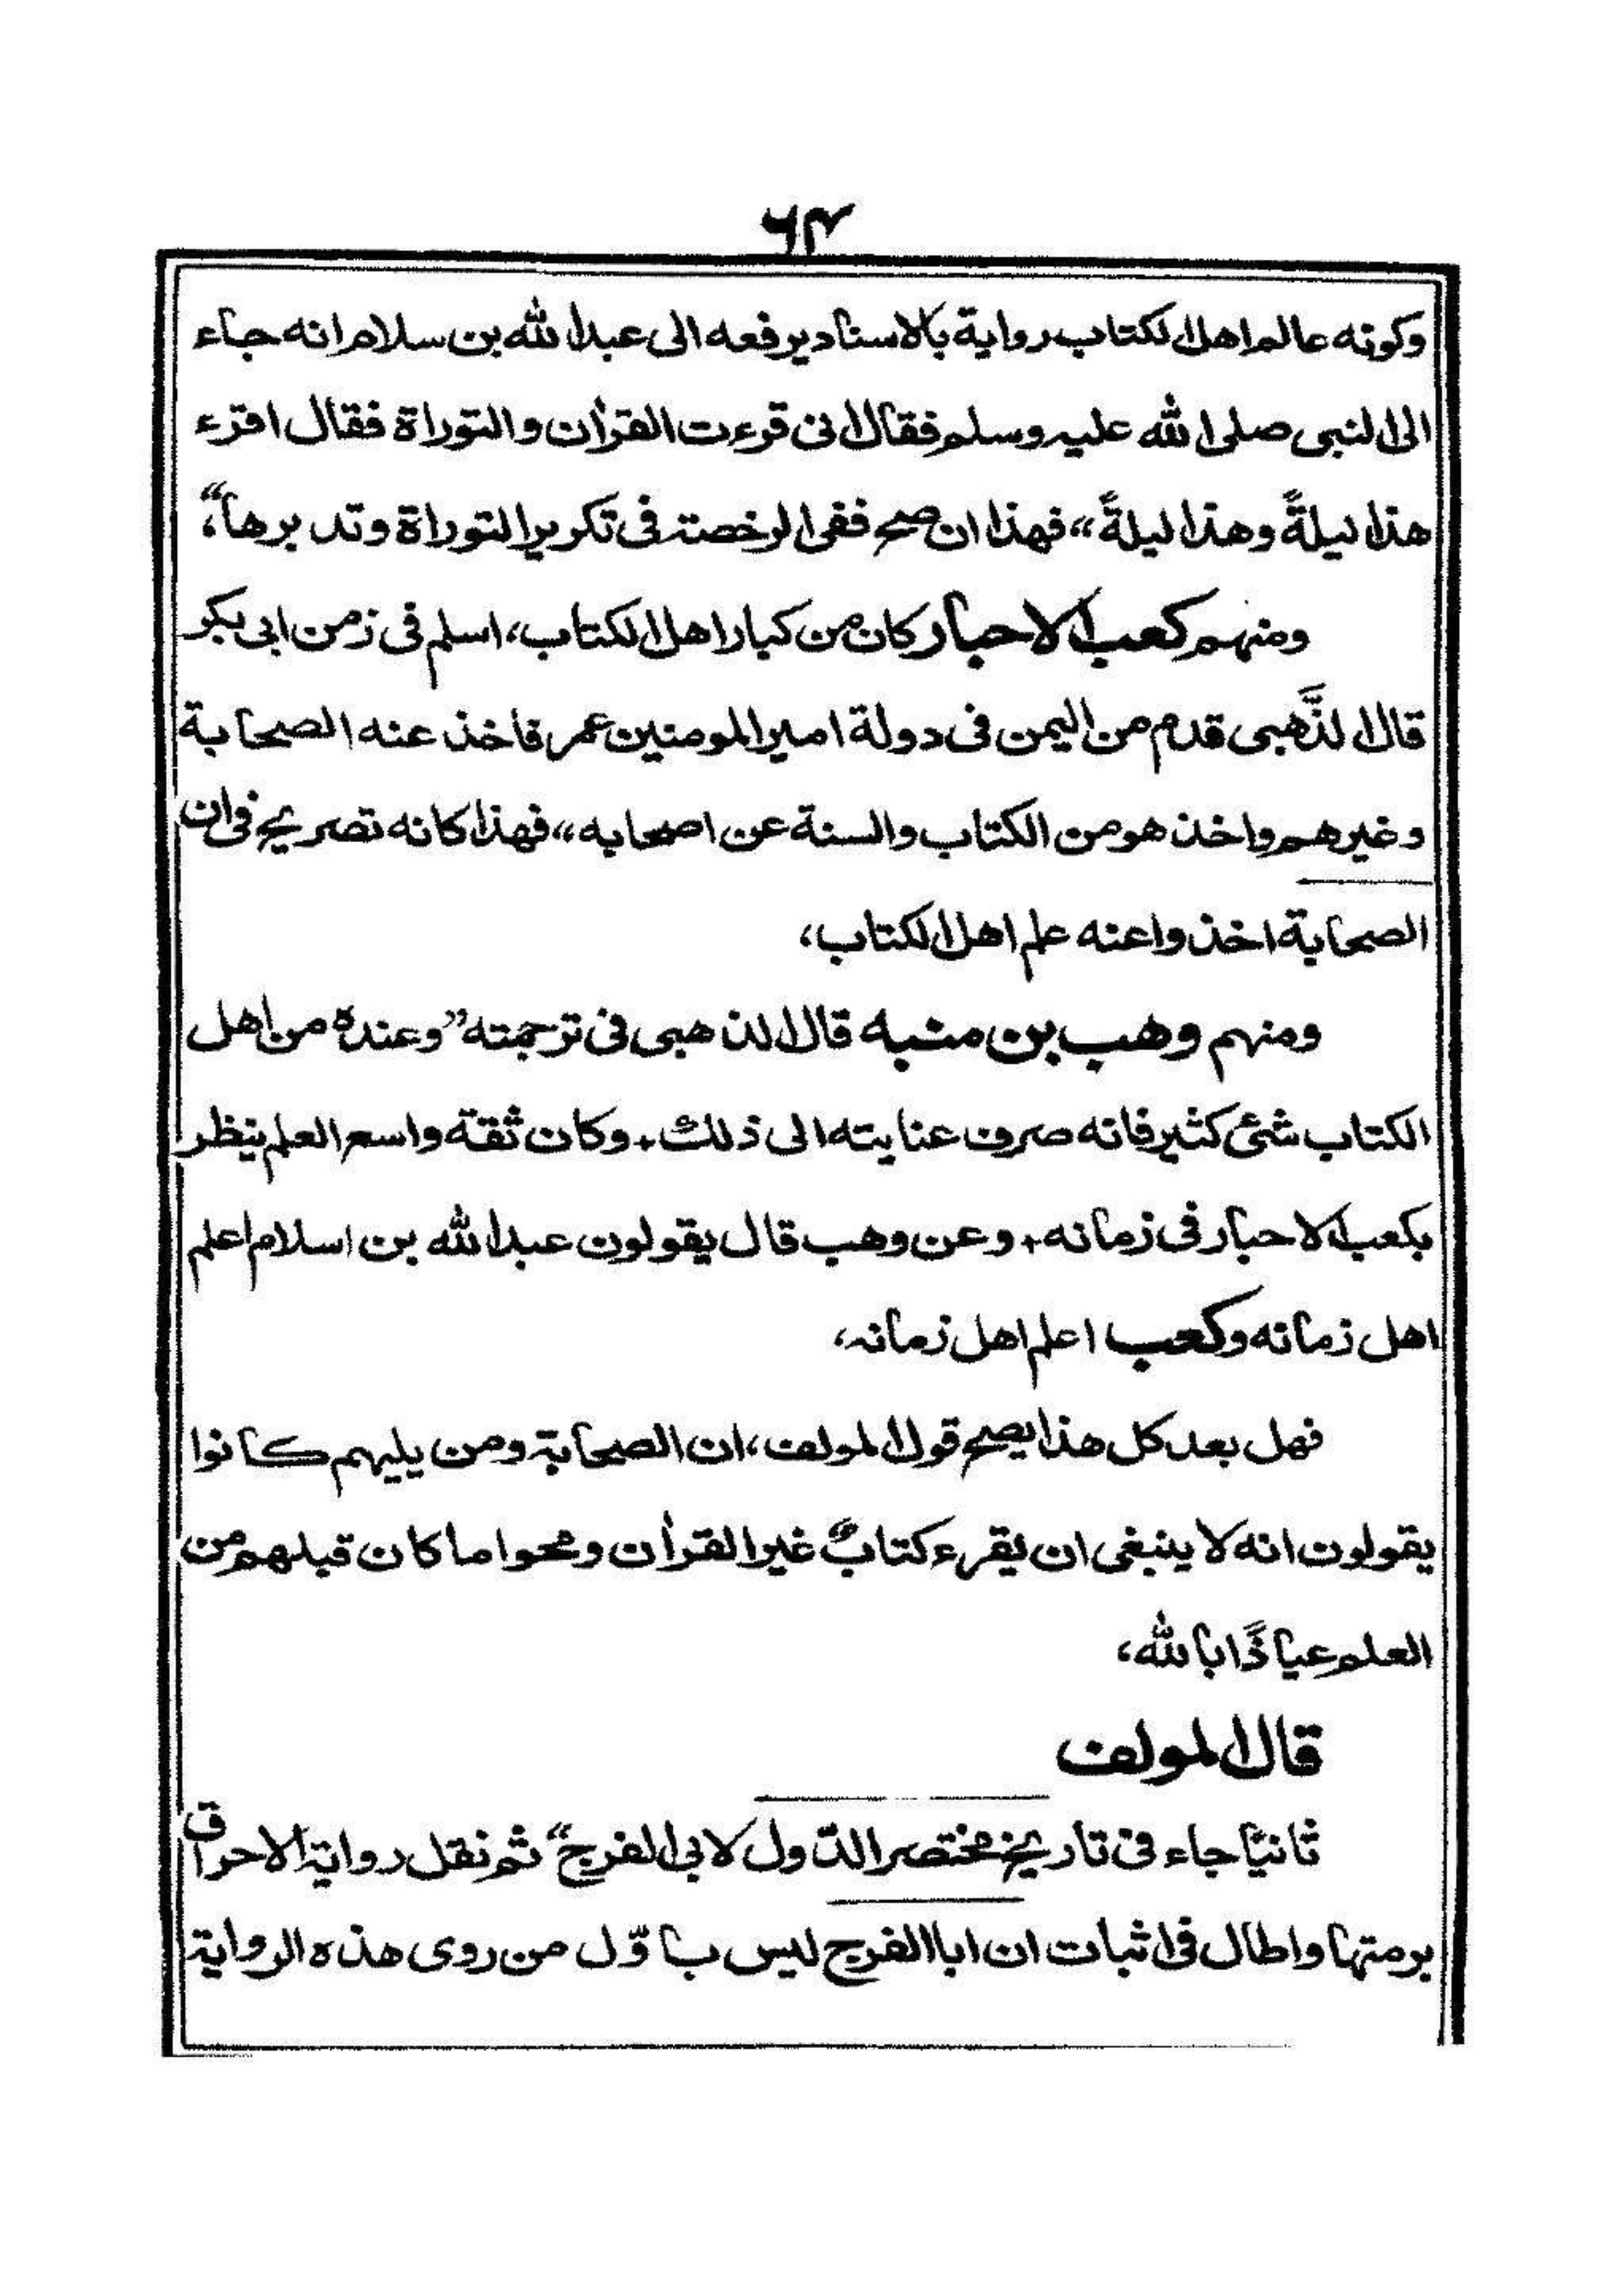 ۶۴
وكونه عالم اهل الكتاب رواية بالاسناد يرفعه الى عبد الله بن سلام انه جاء
الى النبى صلى الله عليه وسلم فقال انى قرءت القرآن والتوراة فقال اقرء
هذا ليلةً وهذا ليلةً» فهذا ان صح ففى الرخصة فى تكرير التوراة وتدبرها“،
ومنهم كعب الاحبار كان من كبار اهل الكتاب، اسلم فى زمن ابى بكر
قال الذَّهبى قدم من اليمن فى دولة امير المومنين عمر فاخذ عنه الصحابة
وغيرهم واخذ هو من الكتاب والسنة عن اصحابه» فهذا كانه تصريح فى ان
الصحابة اخذوا عنه علم اهل الكتاب،
ومنهم وهب بن منبه قال الذهبى فى ترجمته ”وعنده من اهل
الكتاب شئ كثير فانه صرف عنايته الى ذلك + وكان ثقة واسع العلم ينظر
بكعب الاحبار فى زمانه + وعن وهب قال يقولون عبد الله بن اسلام اعلم
اهل زمانه وكعب اعلم اهل زمانه،
فهل بعد كل هذا يصح قول المولف، ان الصحابة ومن يليهم كانوا
يقولون انه لا ينبغى ان يقرء كتابٌ غير القرآن ومحوا ما كان قبلهم من
العلم عياذًا بالله،
قال المولف
ثانيًا جاء فى تاريخ مختصر الدّول لابى الفرج“ ثم نقل رواية الاحراق
برمتها واطال فى اثبات ان ابا الفرج ليس باوّل من روى هذه الرواية